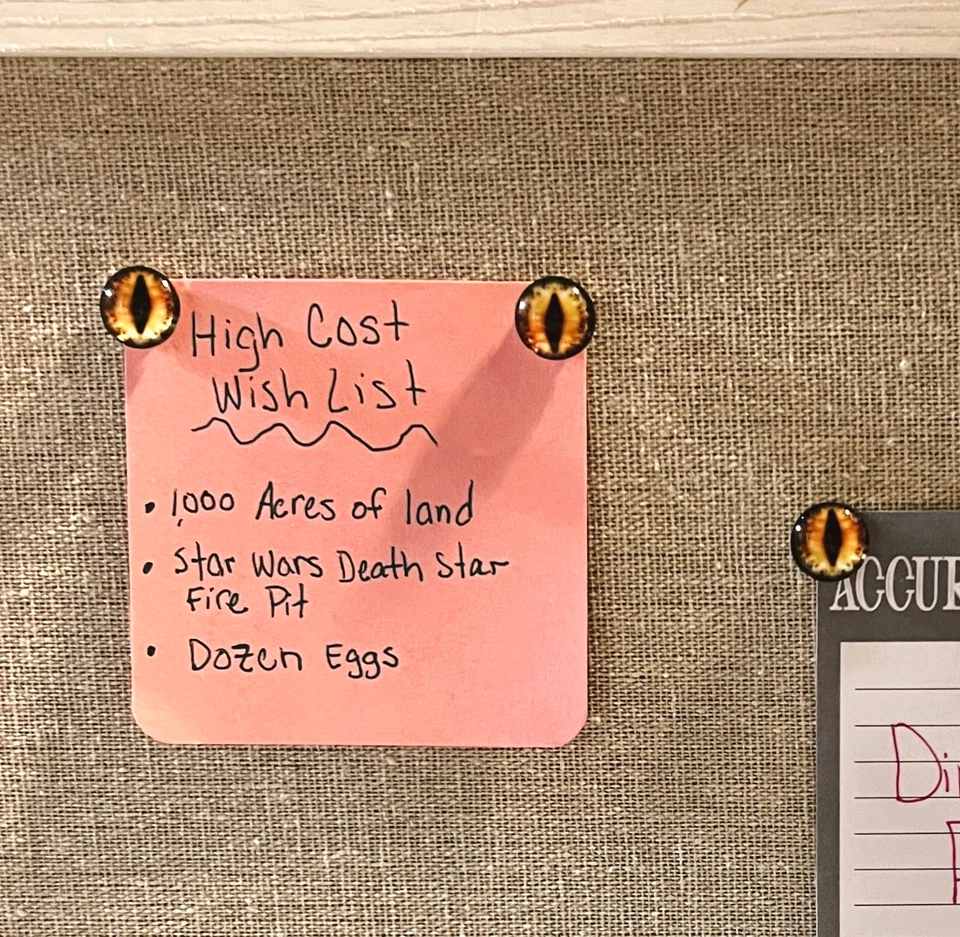 High Cost
Wish List
• 1,000 Acres of land
• Star Wars Death Star
Fire Pit
• Dozen Eggs